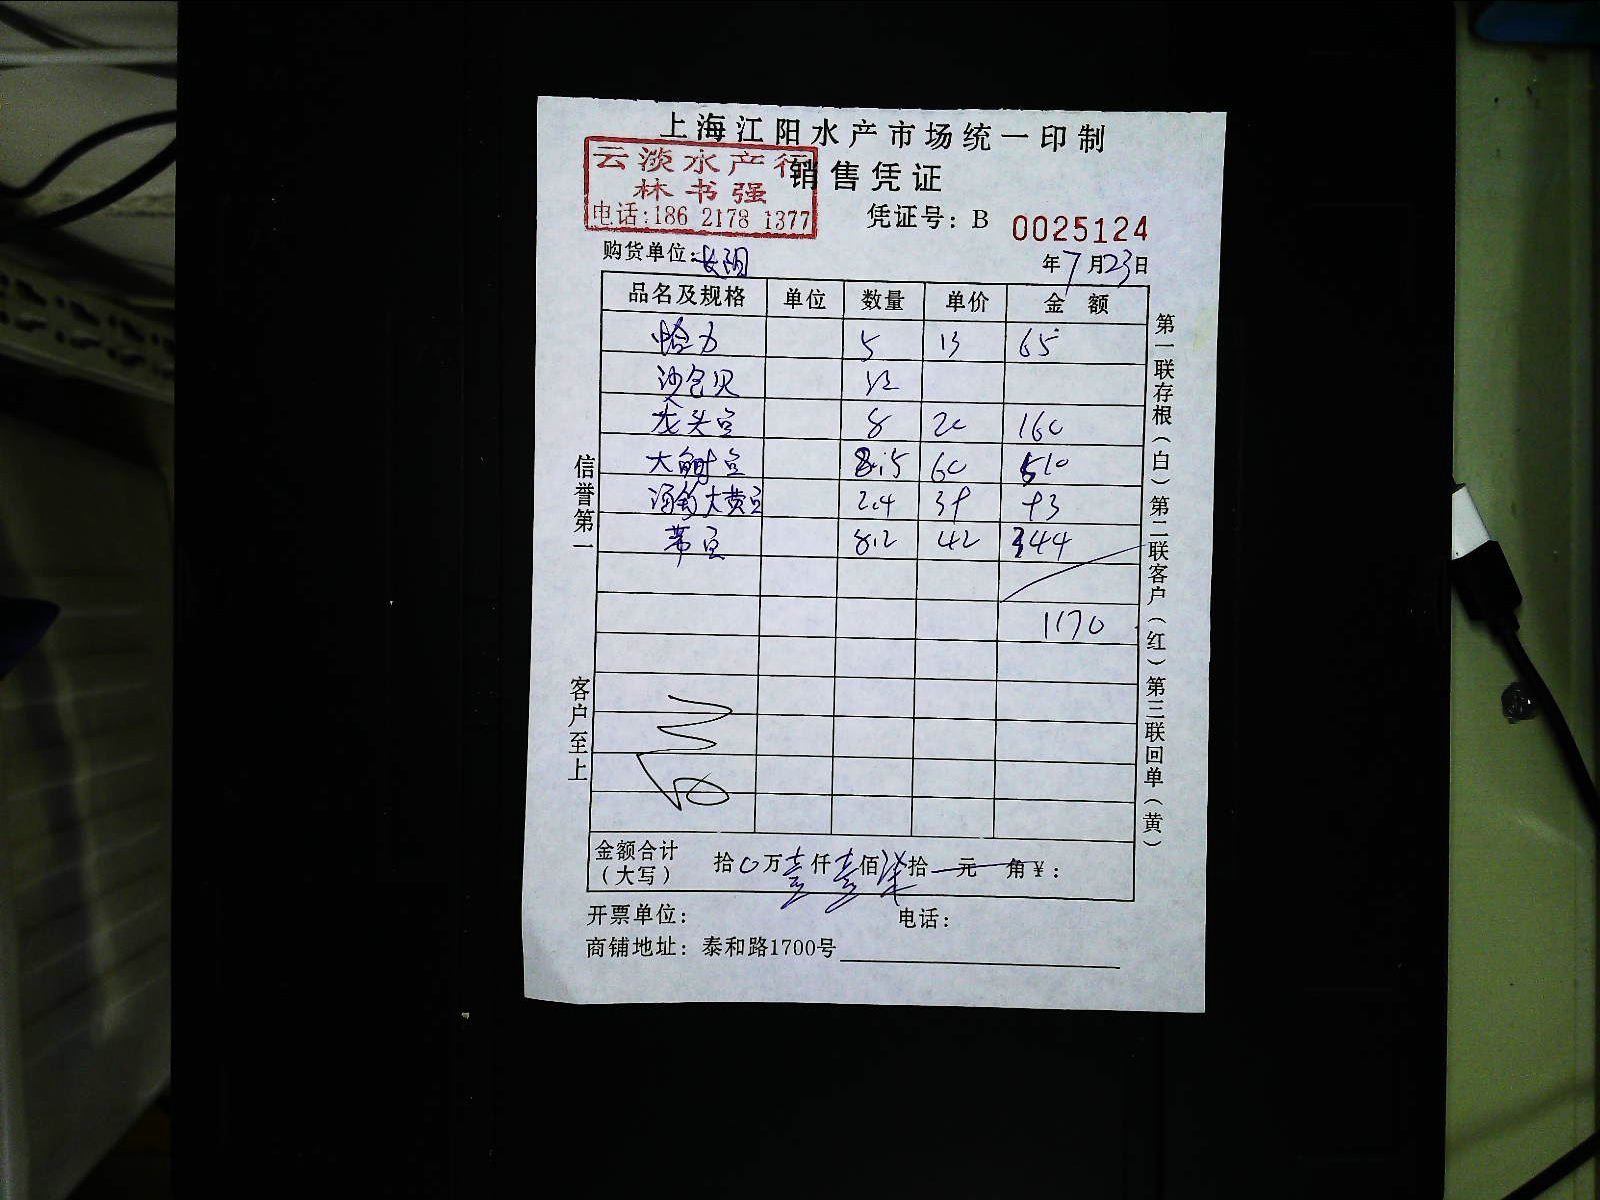 上海江阳水产市场统一印制
销售凭证
云淡水产行
林书强
电话:186 2178 1377
凭证号: B 0025124
购货单位:
年7月23日
品名及规格 单位 数量 单价 金额
蛤力 5 13 65
沙白贝 12
龙头鱼 8 20 160
大鲥鱼 8.5 60 510
大黄鱼 2.4 39 93
带鱼 8.2 42 344
1170
信誉第一
客户至上
第一联存根(白)第二联客户(红)第三联回单(黄)
金额合计(大写) 拾0万壹仟壹佰柒拾元角¥:
开票单位: 电话:
商铺地址: 泰和路1700号